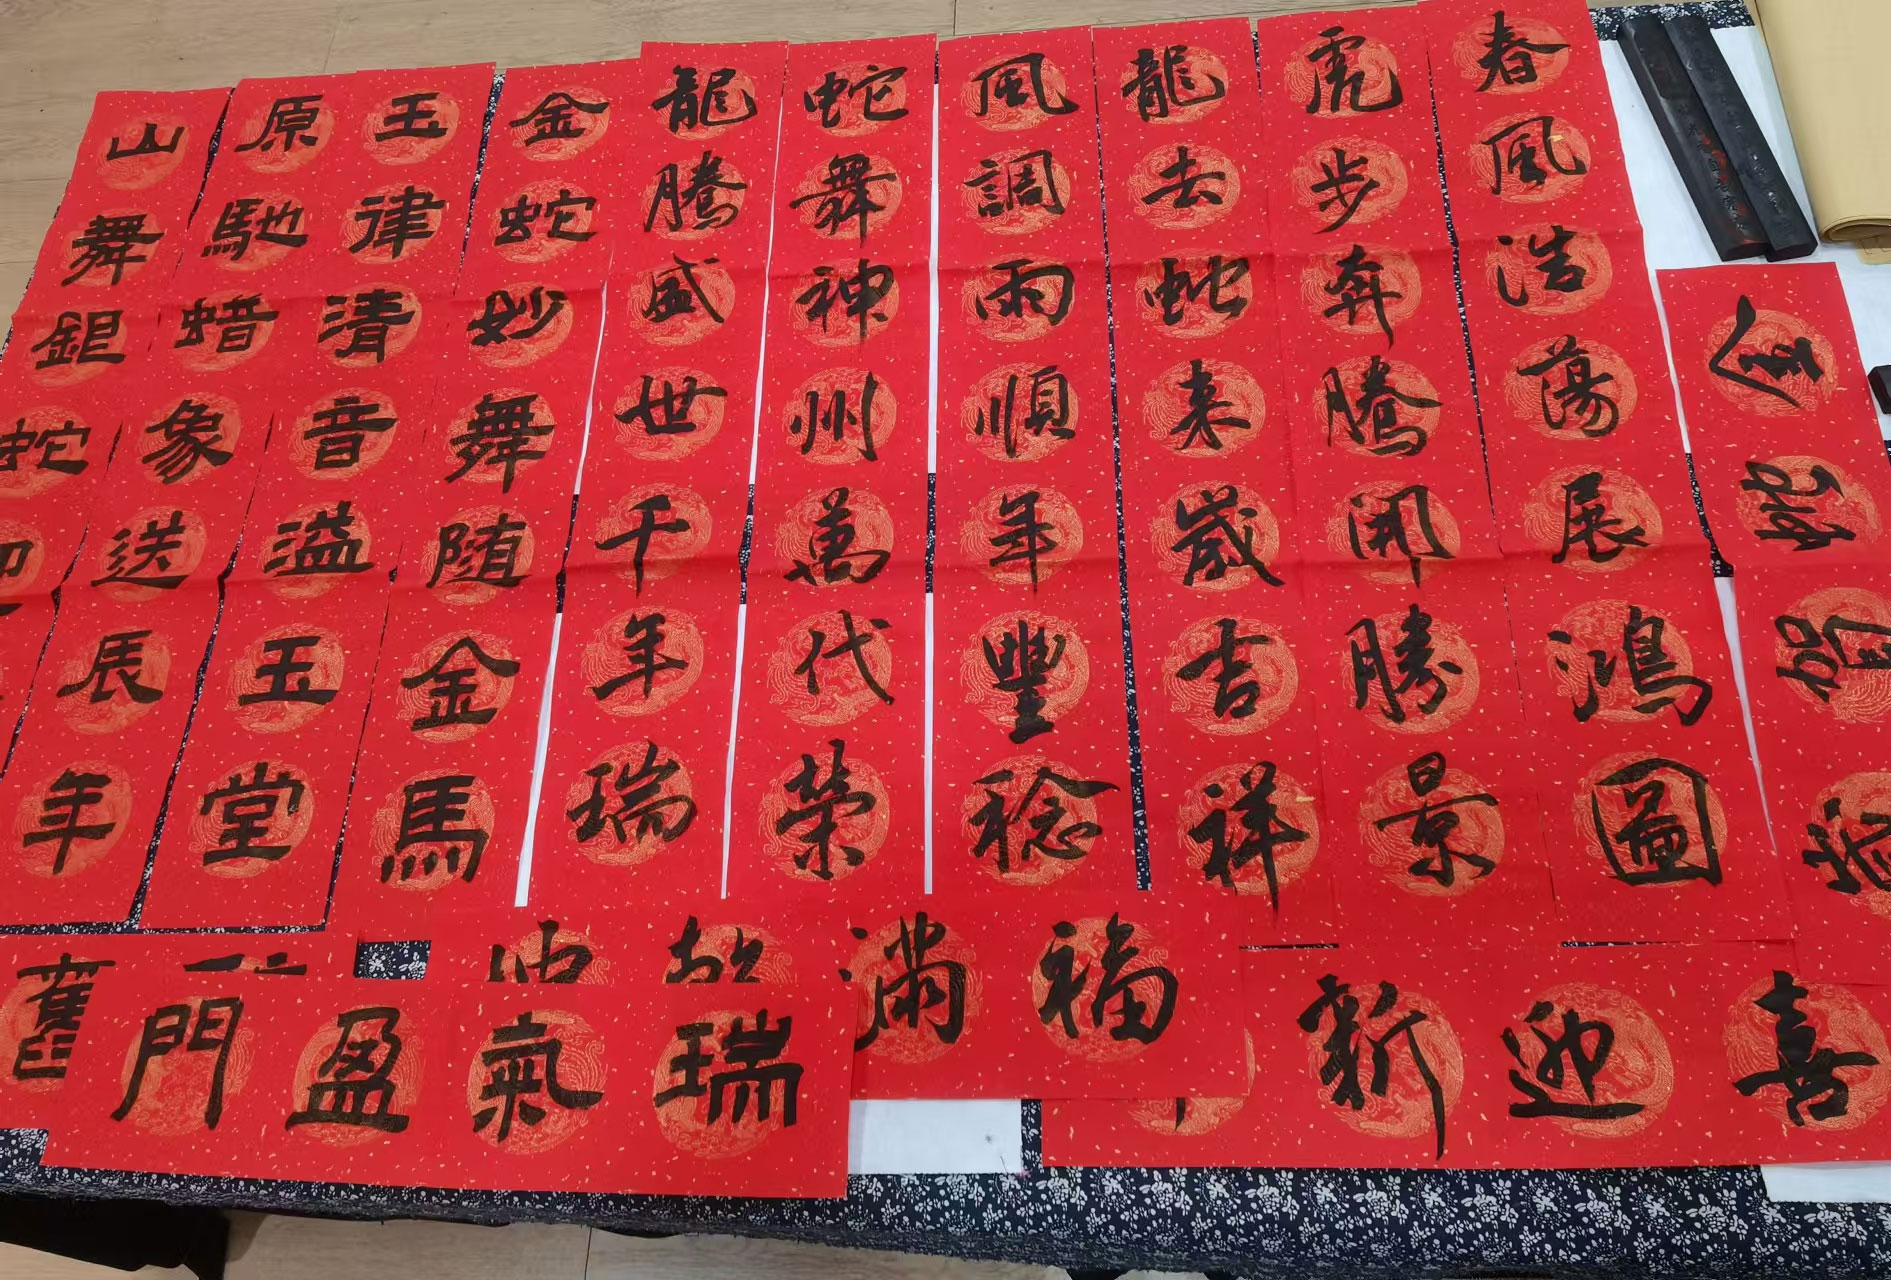 金蛇賀
春風浩蕩展鴻圖
虎步奔騰開勝景
龍去蛇来歲吉祥
風調雨順年豐稔
蛇舞神州萬代榮
龍騰盛世千年瑞
金蛇妙舞随金馬
玉律清音溢玉堂
原馳蜡象送辰年
山舞銀蛇
喜迎新
福满
瑞氣盈門
舊